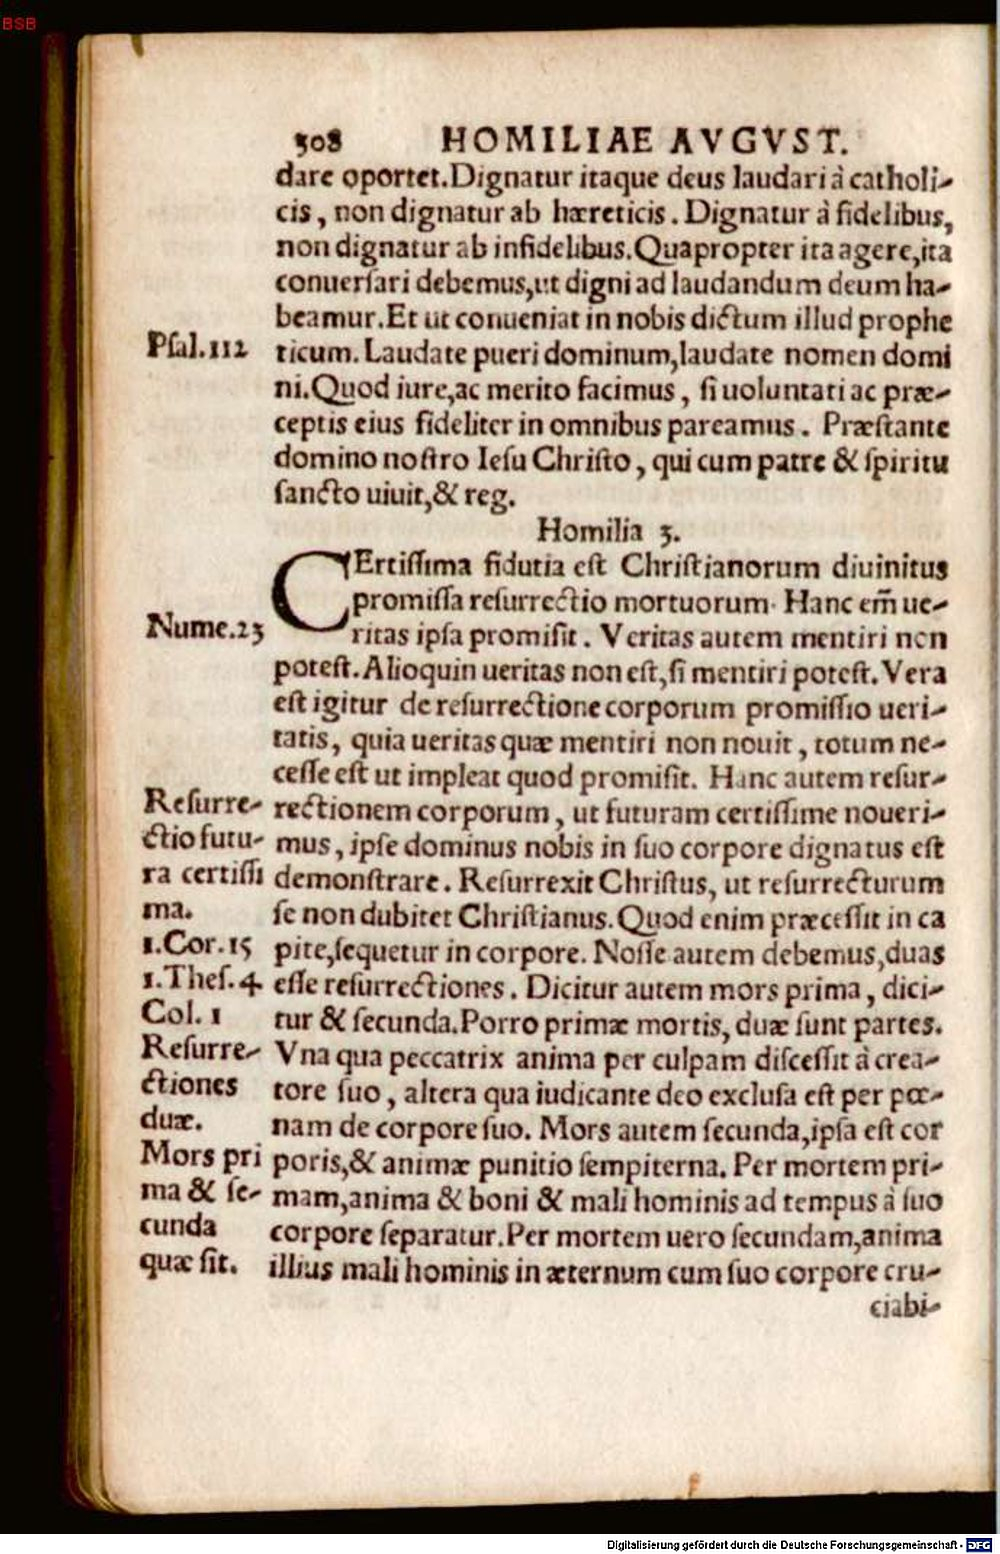 BSB
308 HOMILIAE AVGVST.
dare oportet.Dignatur itaque deus laudari à catholi-
cis, non dignatur ab hæreticis. Dignatur à fidelibus,
non dignatur ab infidelibus.Quapropter ita agere,ita
conuersari debemus,ut digni ad laudandum deum ha-
beamur.Et ut conueniat in nobis dictum illud prophe
Psal.112
ticum. Laudate pueri dominum,laudate nomen domi
ni.Quod iure,ac merito facimus, si uoluntati ac præ-
ceptis eius fideliter in omnibus pareamus. Præstante
domino nostro Iesu Christo, qui cum patre & spiritu
sancto uiuit,& reg.
Homilia 3.
CErtissima fidutia est Christianorum diuinitus
promissa resurrectio mortuorum. Hanc em̃ ue-
Nume.23
ritas ipsa promisit. Veritas autem mentiri non
potest.Alioquin ueritas non est,si mentiri potest.Vera
est igitur de resurrectione corporum promissio ueri-
tatis, quia ueritas quæ mentiri non nouit, totum ne-
cesse est ut impleat quod promisit. Hanc autem resur-
Resurre-
ctio futu-
ra certissi
ma.
rectionem corporum, ut futuram certissime noueri-
mus, ipse dominus nobis in suo corpore dignatus est
demonstrare. Resurrexit Christus, ut resurrecturum
se non dubitet Christianus.Quod enim præcessit in ca
1.Cor.15
1.Thes.4
Col. 1
pite,sequetur in corpore. Nosse autem debemus,duas
esse resurrectiones. Dicitur autem mors prima, dici-
tur & secunda.Porro primæ mortis, duæ sunt partes.
Resurre-
ctiones
duæ.
Vna qua peccatrix anima per culpam discessit à crea-
tore suo, altera qua iudicante deo exclusa est per pœ-
nam de corpore suo. Mors autem secunda,ipsa est cor
Mors pri
ma & se-
cunda
quæ sit.
poris,& animæ punitio sempiterna. Per mortem pri-
mam,anima & boni & mali hominis ad tempus à suo
corpore separatur.Per mortem uero secundam,anima
illius mali hominis in æternum cum suo corpore cru-
ciabi-
Digitalisierung gefördert durch die Deutsche Forschungsgemeinschaft - DFG